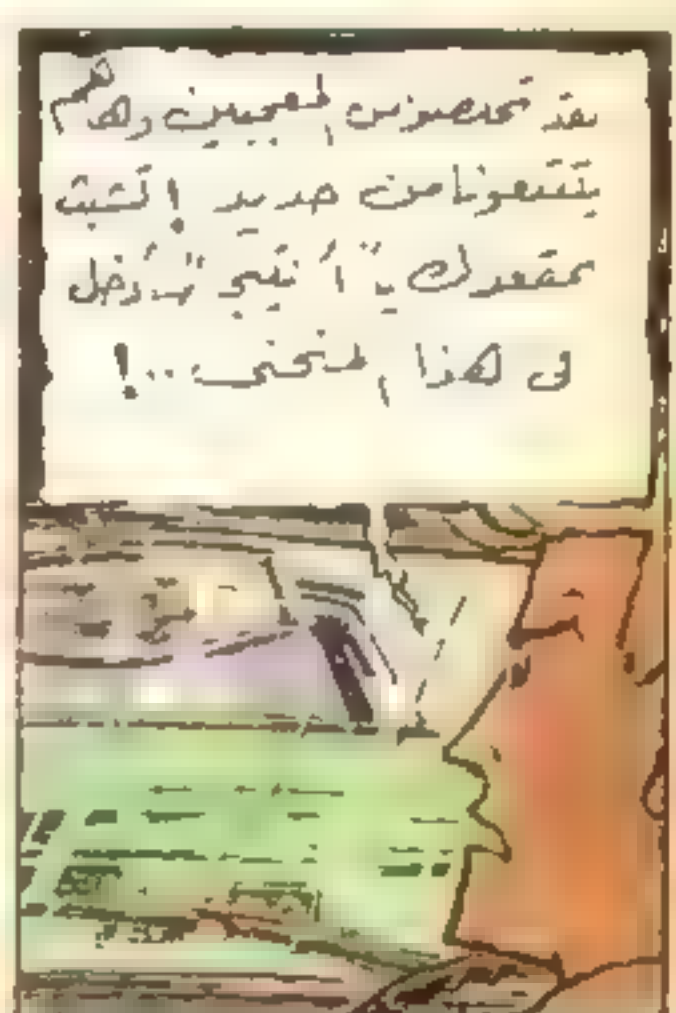 لقد تخلصوا من المعجبين وهاهم
يتتبعونا من جديد ! تشبث
بمقعدك يا
في هذا المنحنى ..!